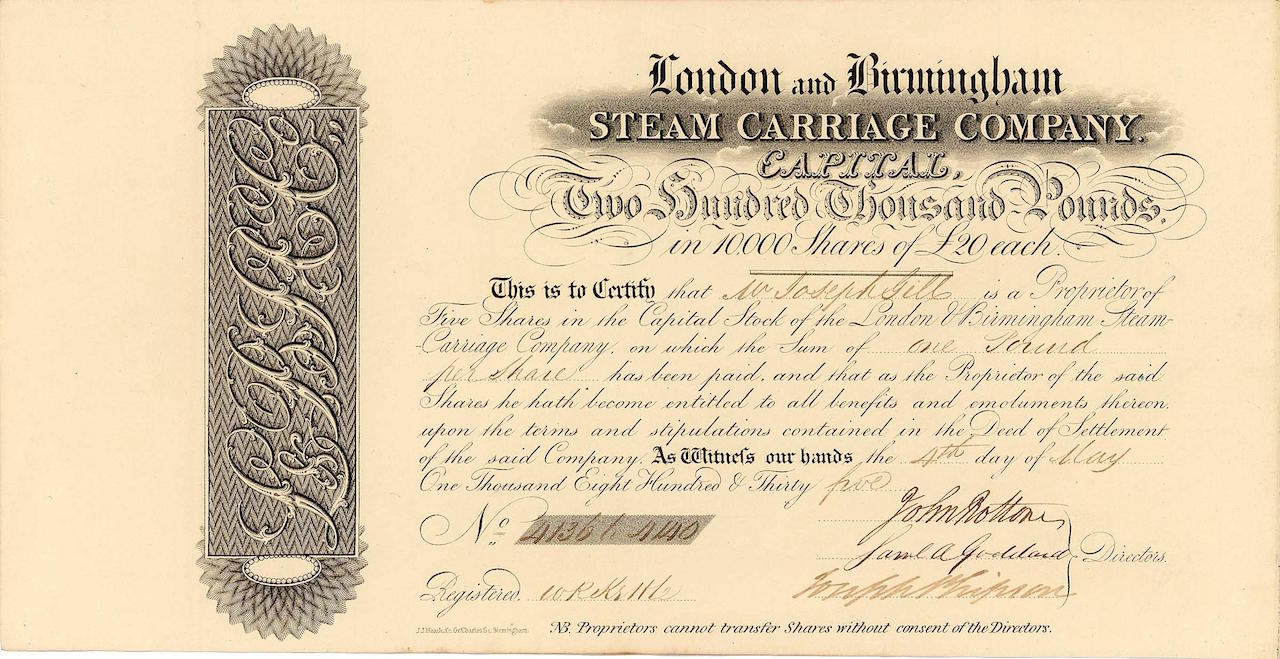 L. & B. S. C. C.º
London and Birmingham
STEAM CARRIAGE COMPANY.
CAPITAL,
Two Hundred Thousand Pounds.
in 10,000 Shares of £20 each.
This is to Certify that Mr Joseph Gill is a Proprietor of
Five Shares in the Capital Stock of the London & Birmingham Steam-
Carriage Company, on which the Sum of one Pound
per share has been paid, and that as the Proprietor of the said
Shares he hath become entitled to all benefits and emoluments thereon,
upon the terms and stipulations contained in the Deed of Settlement
of the said Company. As Witness our hands the 4th day of May
One Thousand Eight Hundred & Thirty five
No. 4136 to 4140
John Rottons
Saml A Goddard
Directors.
Joseph Shipson
Registered,
NB. Proprietors cannot transfer Shares without consent of the Directors.